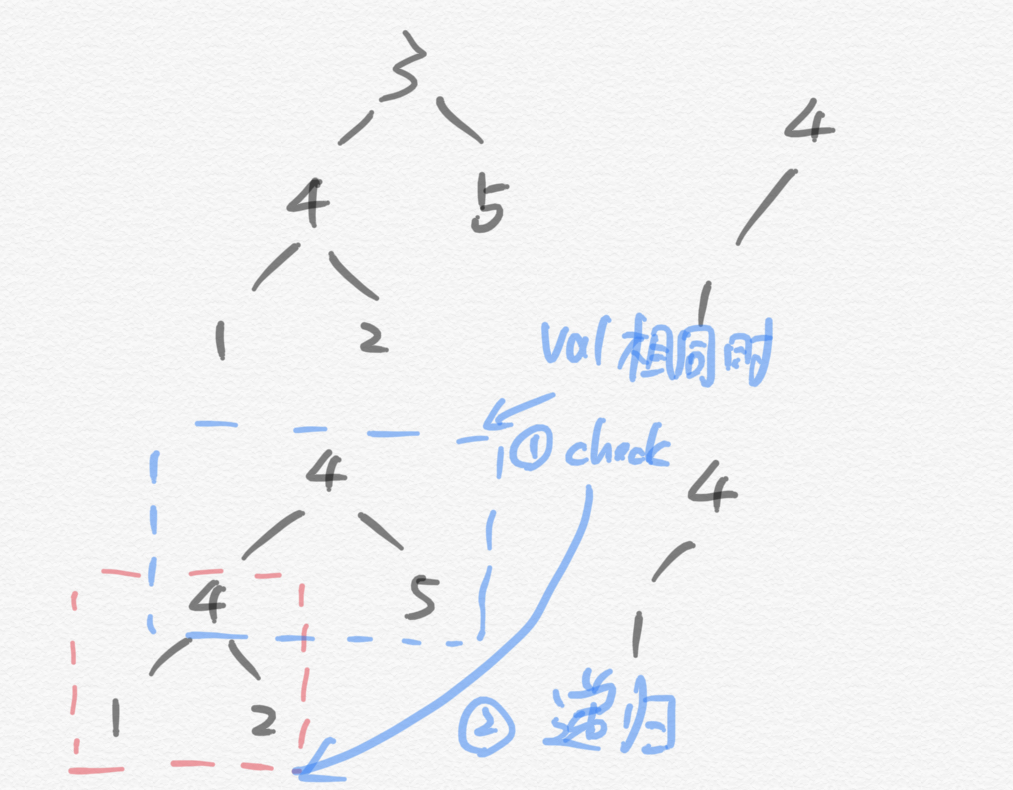 3
4
4 5
1 2 1
val 相同时
① check
4 4
4 5
1 2 1
② 递归